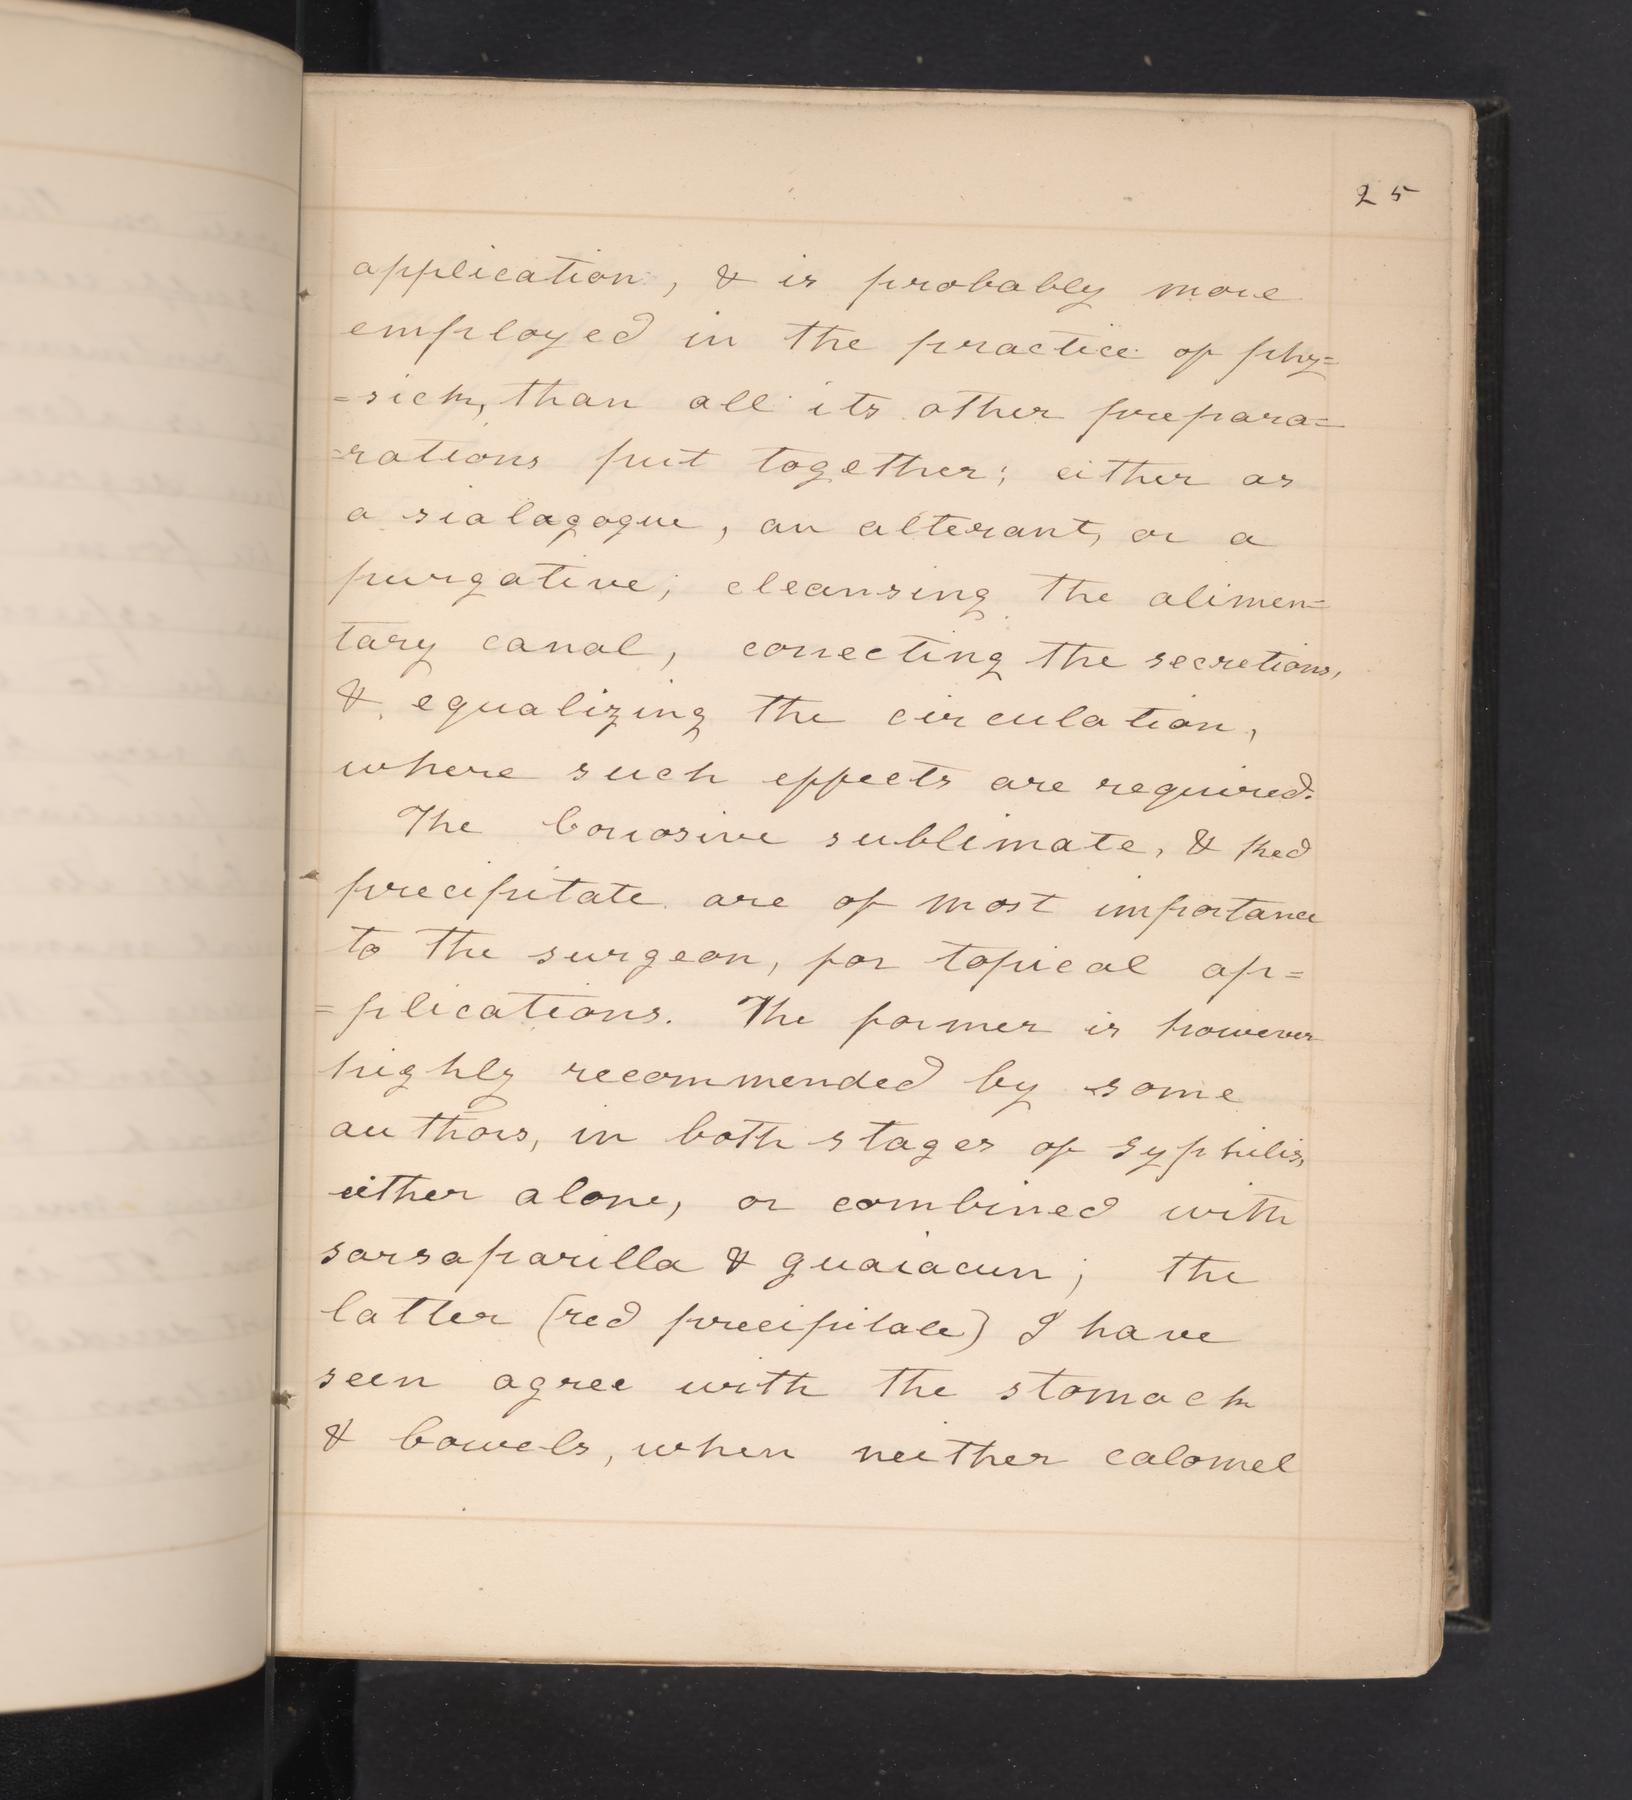 25
application, & is probably more
employed in the practice of phy=
=sick, than all its other prepara=
=rations put together; either as
a sialagogue, an alterant, or a
purgative; cleansing the alimen=
tary canal, correcting the secretions,
& equalizing the circulation,
where such effects are required.
The Corrosive sublimate, & Red
precipitate are of most importance
to the surgeon, for topical ap=
=plications. The former is however
highly recommended by some
authors, in both stages of Syphilis,
either alone, or combined with
sarsaparilla & guaiacum; the
latter (red precipitate) I have
seen agree with the stomach
& bowels, when neither calomel